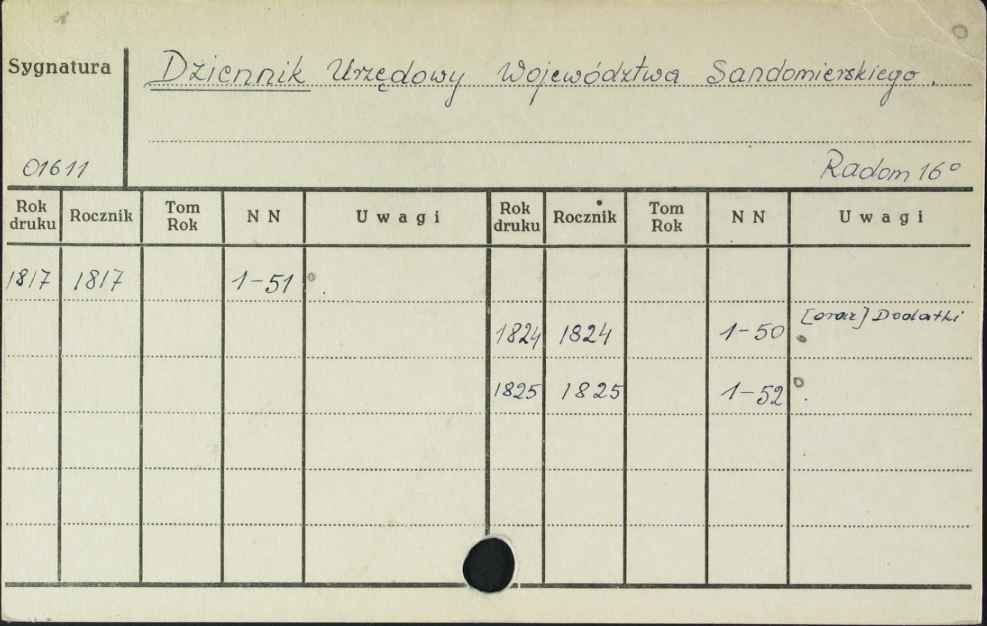 Sygnatura
Dziennik Urzędowy Województwa Sandomierskiego.
01611
Radom 16°
Rok druku Rocznik Tom Rok NN Uwagi Rok druku Rocznik Tom Rok NN Uwagi
1817 1817 1-51
1824 1824 1-50 [oraz] Dodatki
1825 1825 1-52